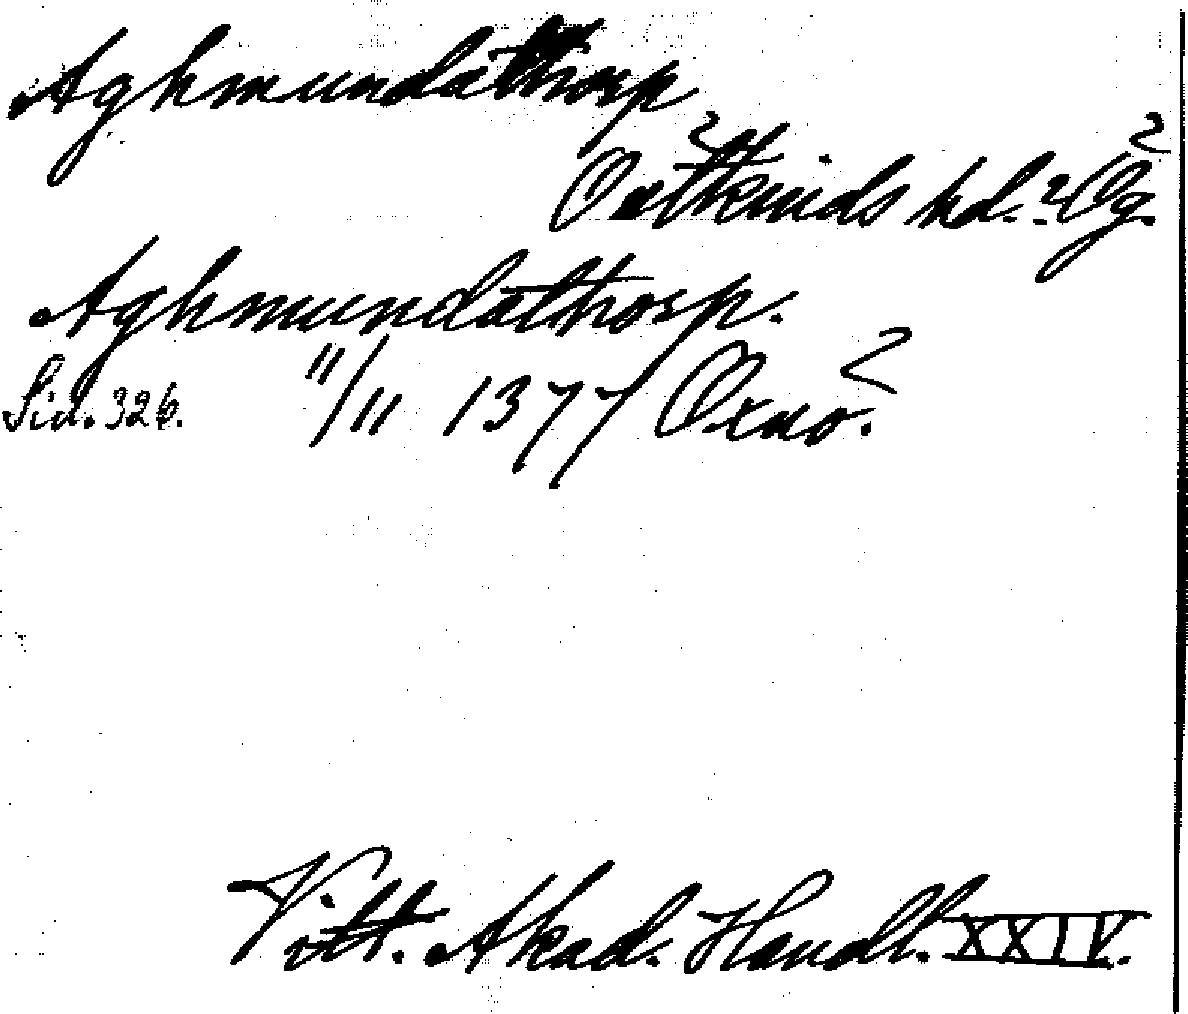 Aghmundathorp
Östkinds hd. ? Ög.
Aghmundathorp.
Sid. 326. 11/11 1377 Oxnö.
Vitt. Akad. Handl. XXIV.